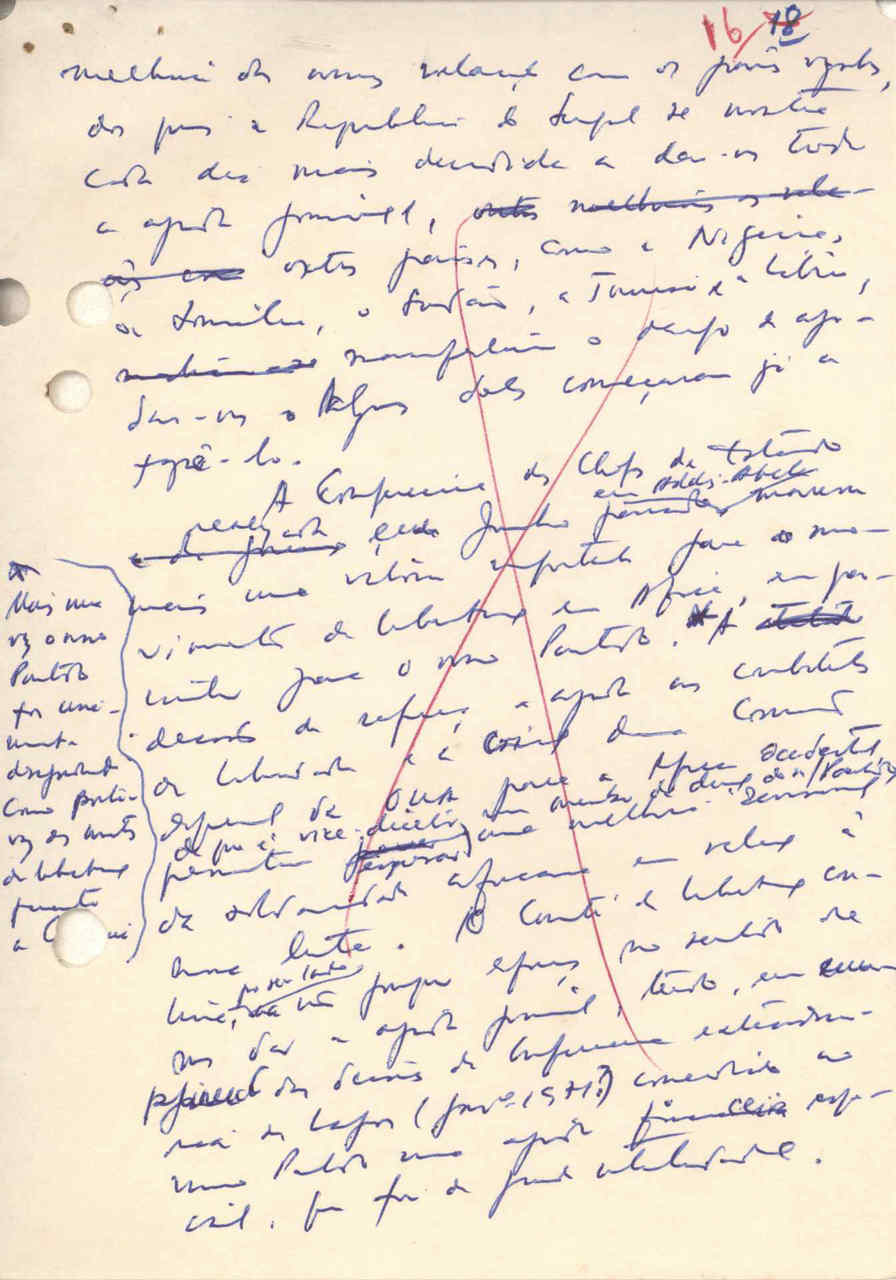 16 18
melhoria das nossas relações com os países vizinhos,
dos quais a República do Senegal se mostra
cada vez mais decidida a dar-nos toda
a ajuda possível, outros melhoraram as rela-
ções outros países, como a Nigéria,
a Somália, o Sudão, a Tunísia e a Líbia,
manifestaram o desejo de aju-
dar-nos e Alguns deles começaram já a
fazê-lo.
A Conferência dos Chefes de Estado
realizada em Addis-Abeba
em Junho passado, marcou
mais uma vitória importante para o mo-
vimento de libertação em África, em par-
ticular para o nosso Partido. * A
decisão de reforçar a ajuda aos combatentes
da liberdade e a criação duma Comissão
especial da OUA para a África Ocidental
de que é vice-director um membro da direcção do n/ Partido,
permitem esperar uma melhoria sensível
da solidariedade africana em relação à
nossa luta. O Comité de Libertação con-
tinua, por seu lado, a não poupar esforços no sentido de
nos dar a ajuda possível, tendo, em
das decisões da Conferência extraordiná-
ria de Lagos (1971?) concedido ao
nosso Partido uma ajuda financeira espe-
cial, que foi de grande utilidade.
*
Mais uma
vez o nosso
Partido
foi unani-
mente
designado
como porta-
voz dos movimentos
de libertação
perante
a